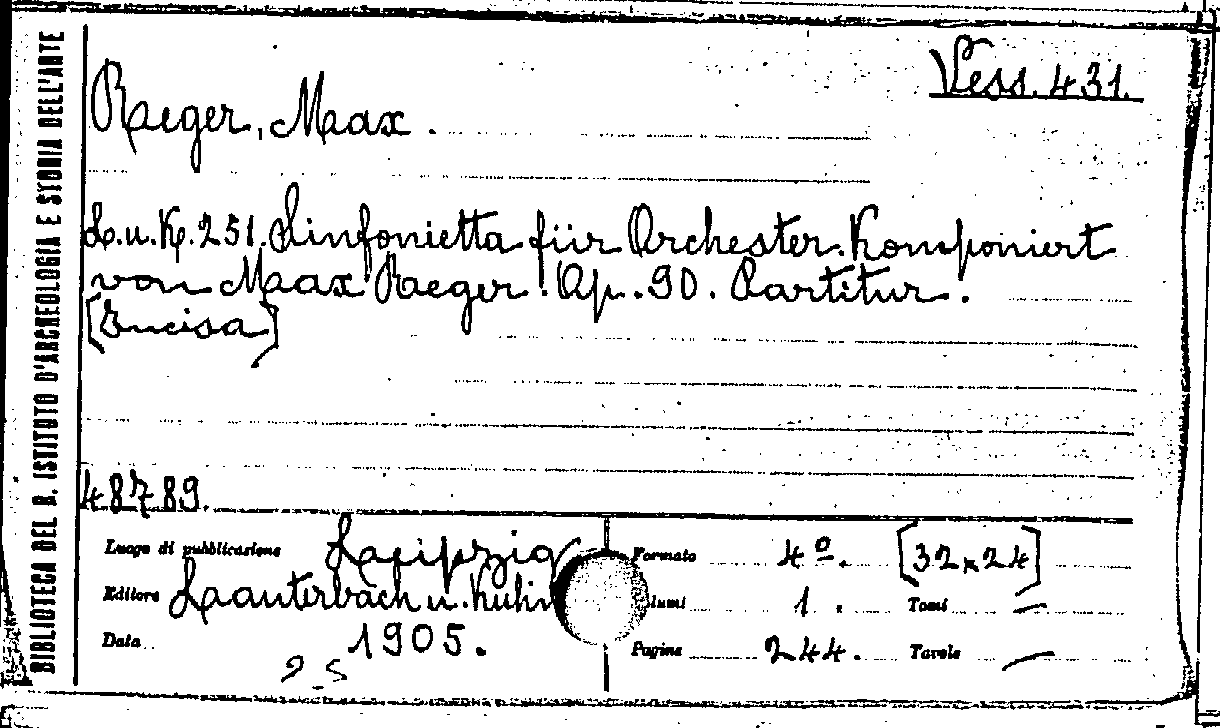 BIBLIOTECA DEL R. ISTITUTO D'ARCHEOLOGIA E STORIA DELL'ARTE
Vess. 431.
Reger, Max.
L.u.K. 251. Sinfonietta für Orchester. Komponiert
von Max Reger. Op. 90. Partitur.
[Incisa]
48789.
Luogo di pubblicazione Leipzig
Formato 4º. [32x24]
Editore Lauterbach u. Kuhn
lumi 1. Tomi —
Data 1905.
Pagine 244. Tavole —